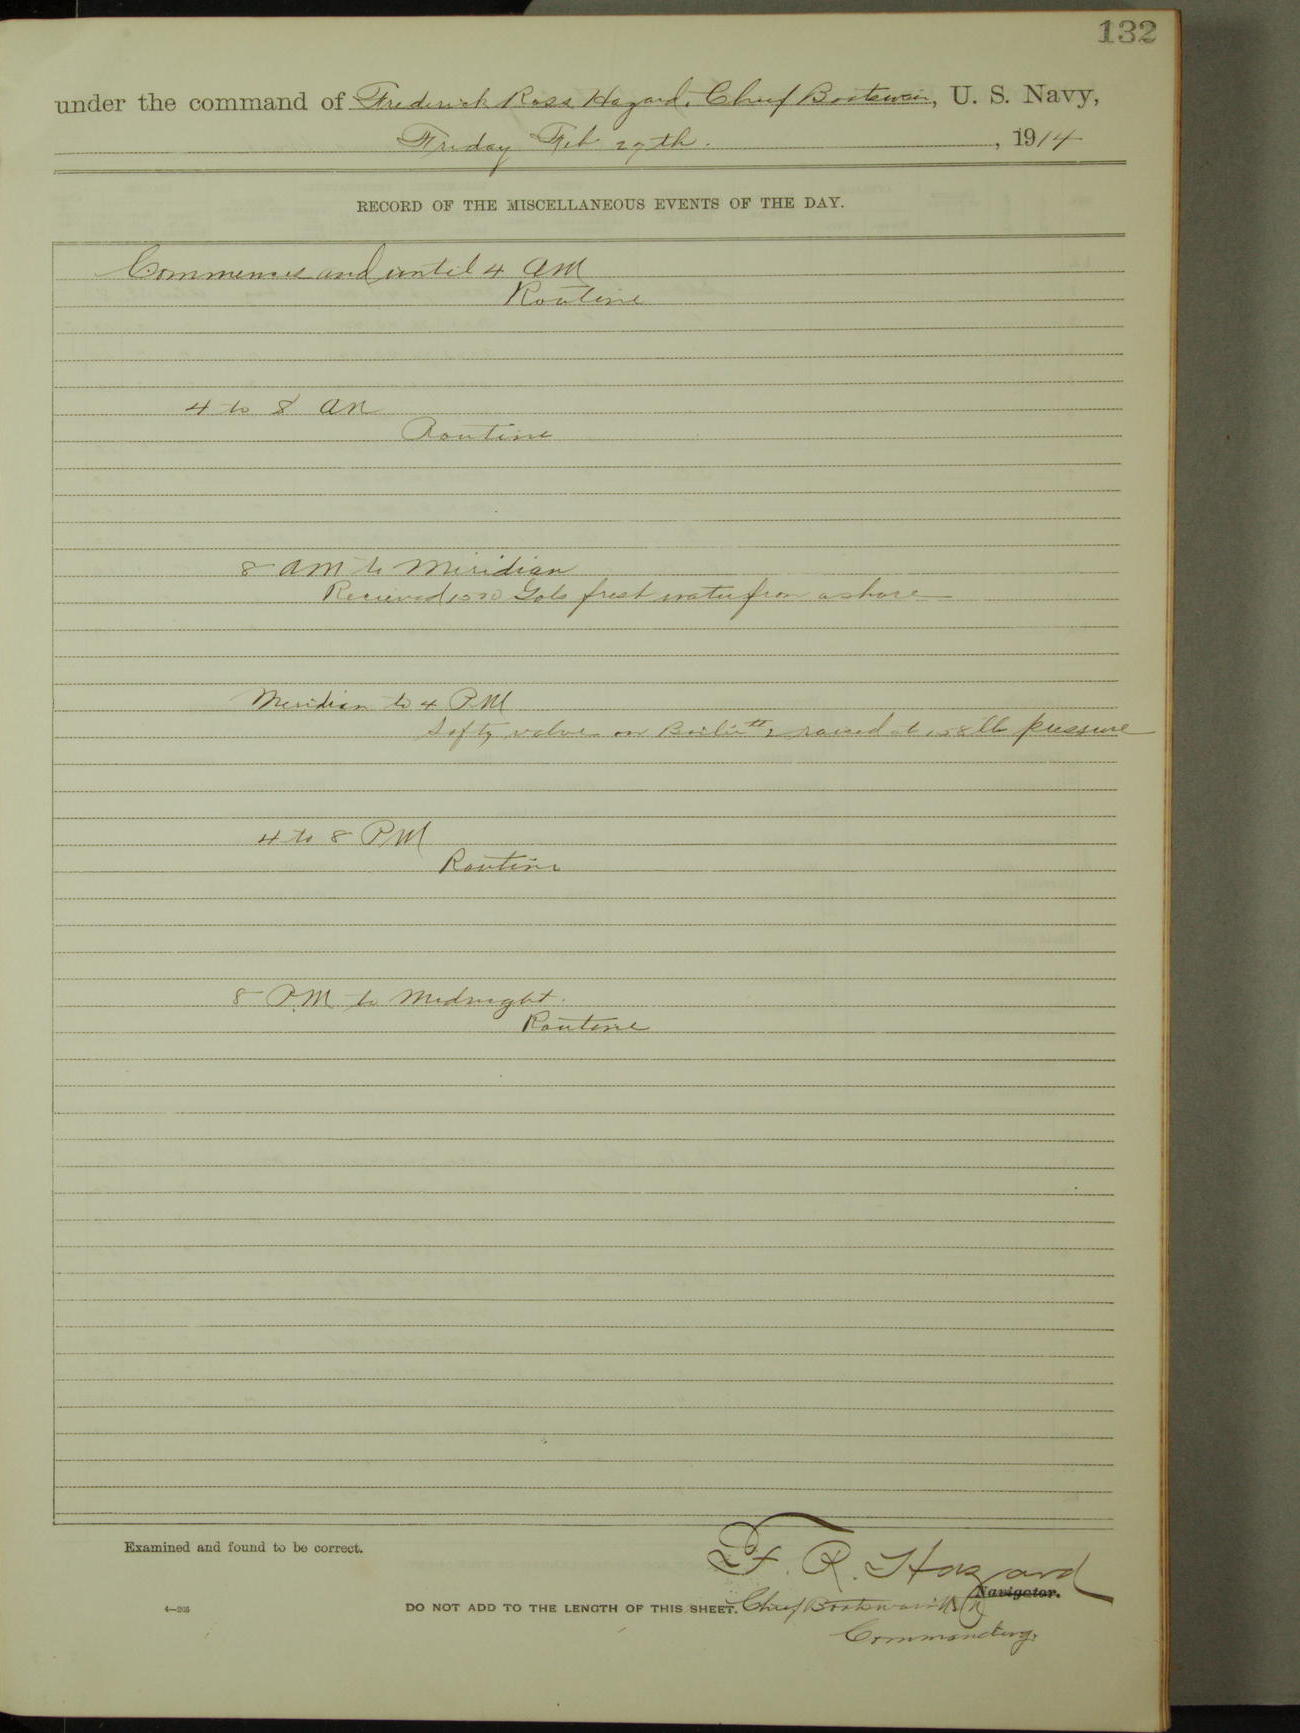 132
under the command of Frederick Ross Hazard, Chief Boatswain, U. S. Navy,
Friday Feb 27th. , 1914
RECORD OF THE MISCELLANEOUS EVENTS OF THE DAY.
Commences and until 4 AM
Routine
4 to 8 AM
Routine
8 AM to Meridian
Recieved Gals fresh water from ashore
Meridian to 4 PM
Safty valve on Boiler # 2 raised at 158 lb pressure
4 to 8 PM
Routine
8 PM to Midnight.
Routine
Examined and found to be correct.
F. R. Hazard
Navigator.
4—205
DO NOT ADD TO THE LENGTH OF THIS SHEET. Chief Boatswain USN
Commanding.